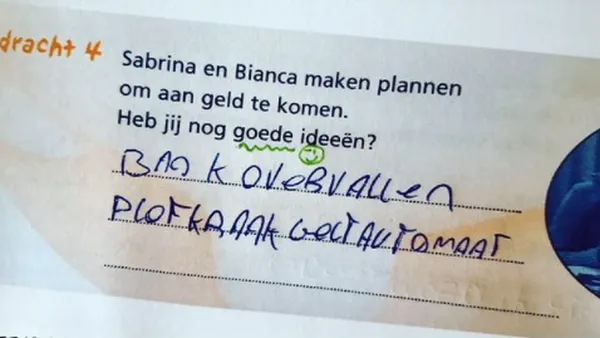 dracht 4
Sabrina en Bianca maken plannen
om aan geld te komen.
Heb jij nog goede ideeën?
BAN K OVERVALLEN
PLOFKRAAK GELTAUTOMAAT